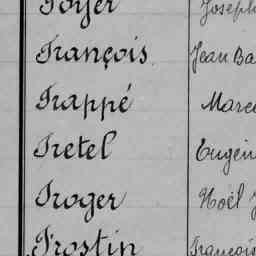 Foyer Joseph
François Jean Ba
Frappé Marce
Fretel Eugèn
Froger Noël J
Frostin François